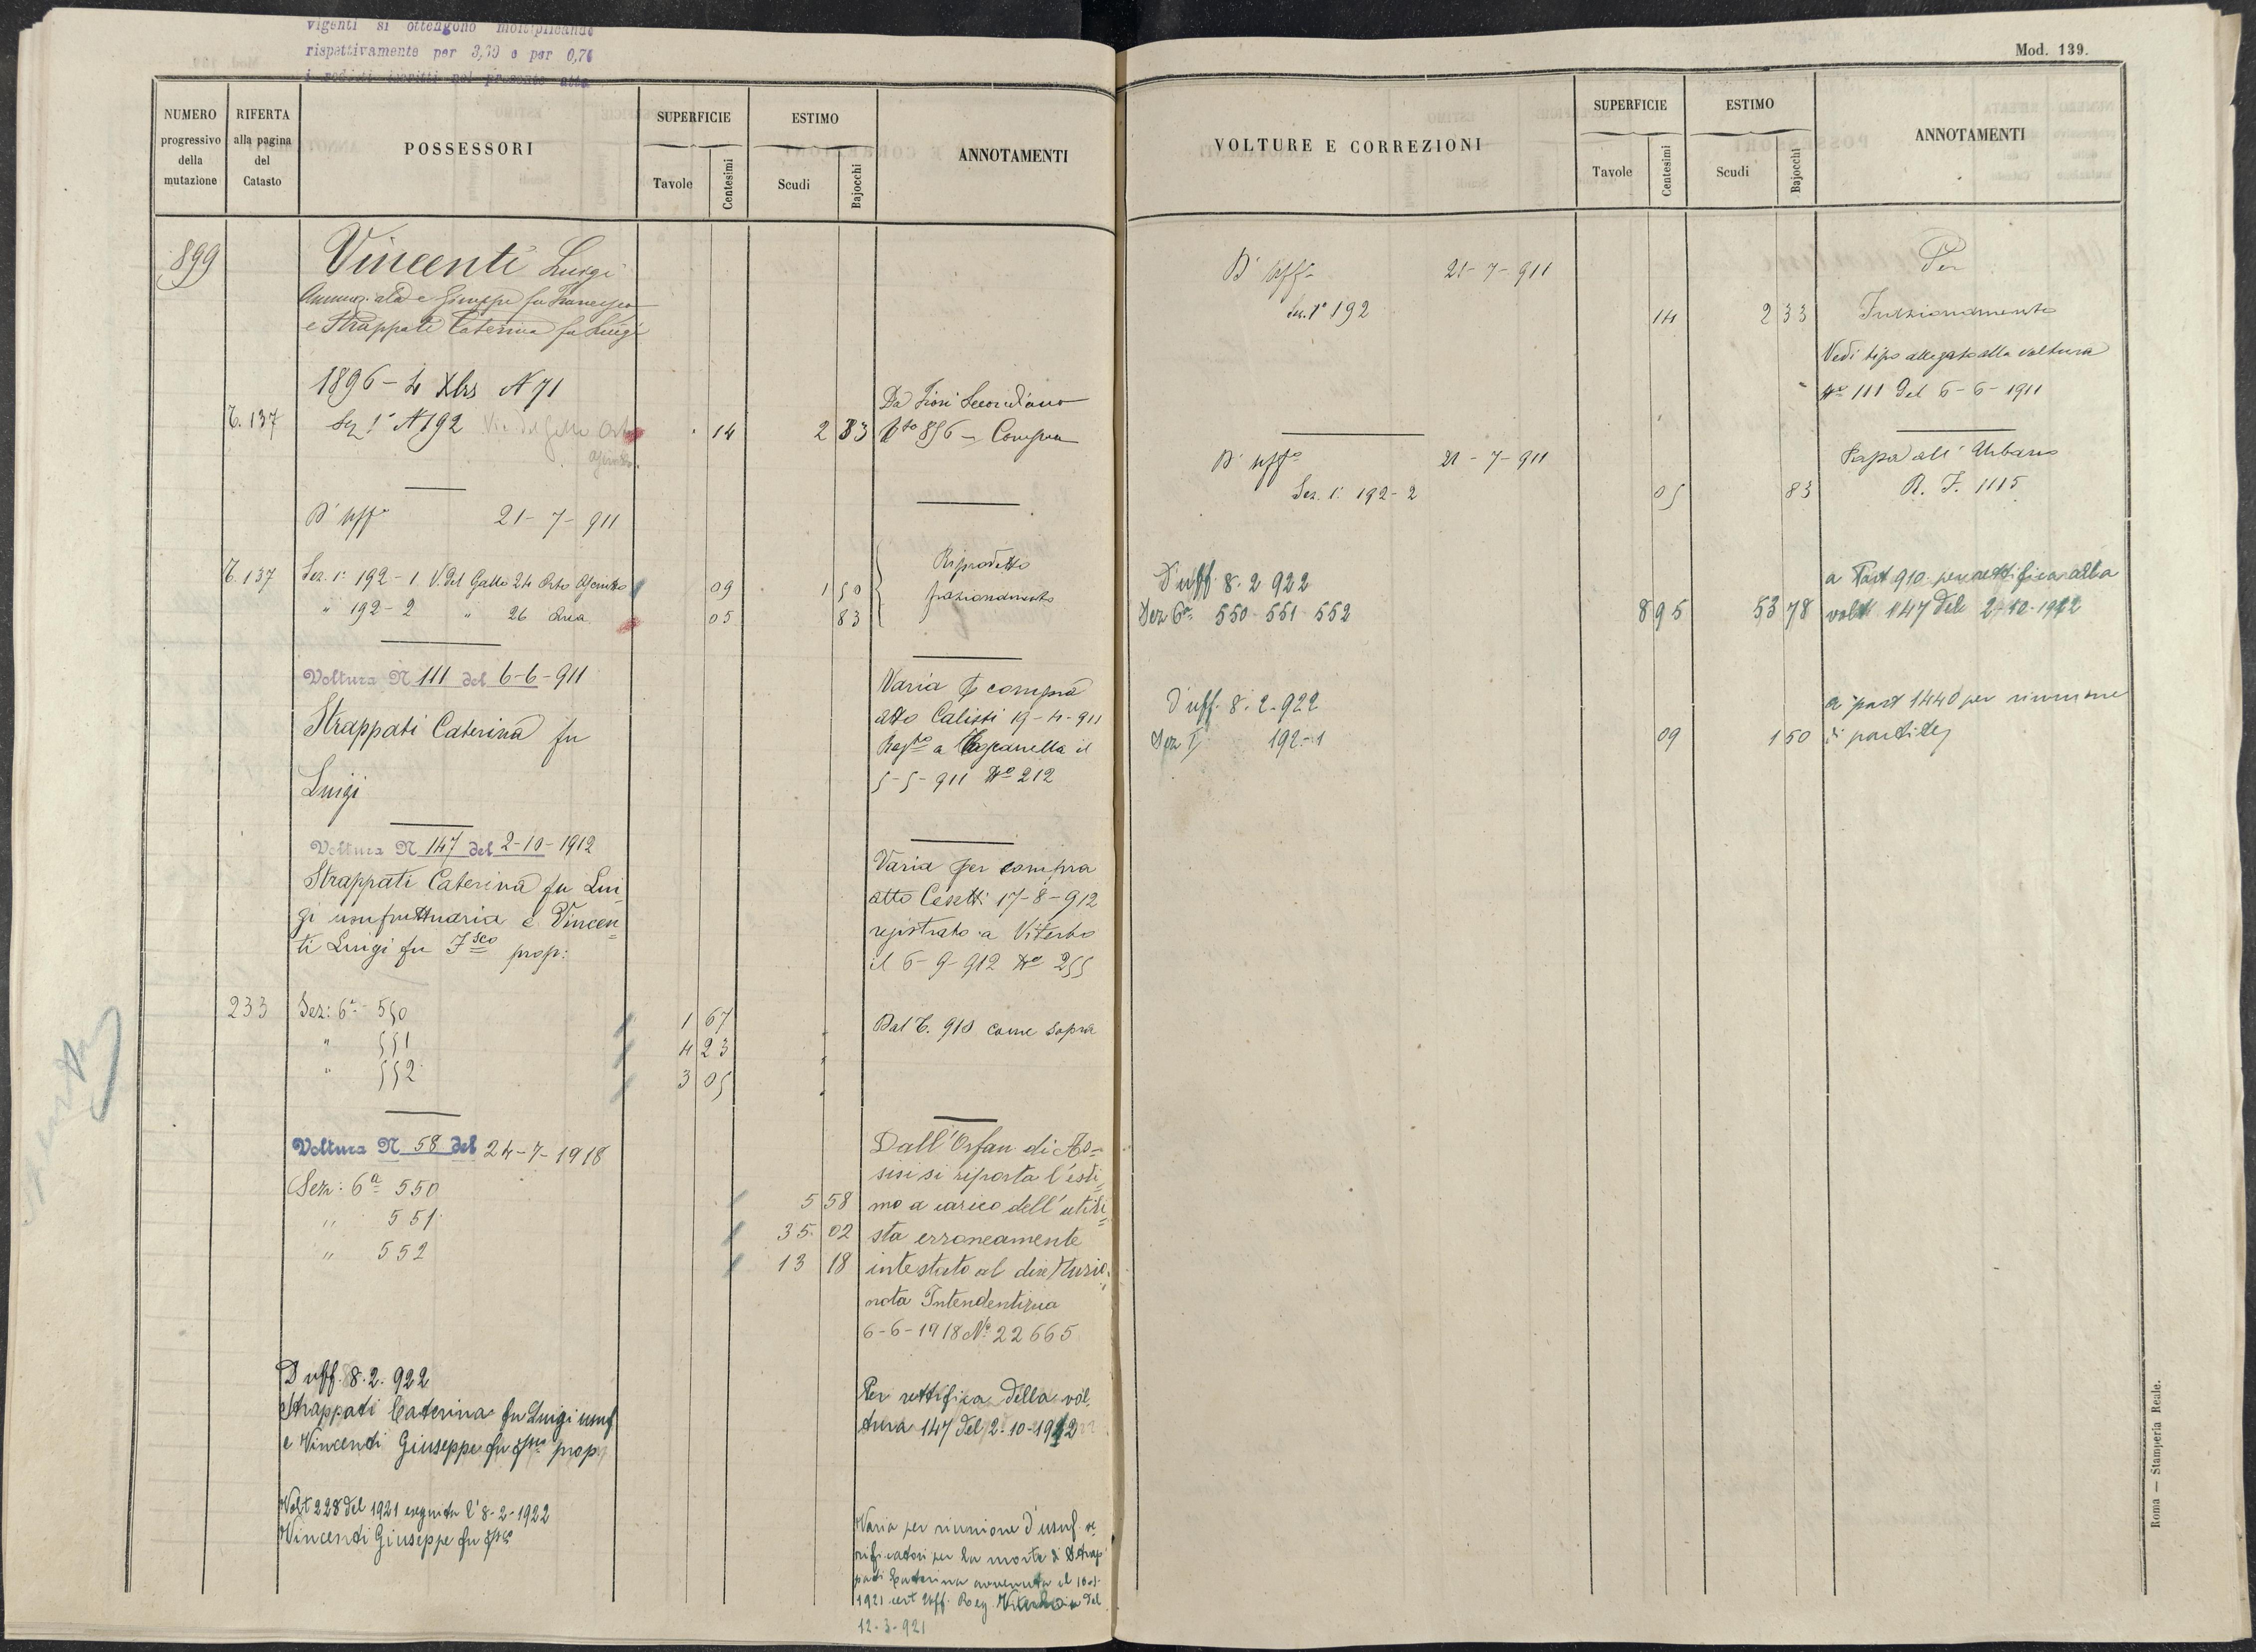 vigenti si ottengono moltiplicando
rispettivamente per 3,79 e per 0,76
i redditi iscritti nel presente atto
NUMERO progressivo della mutazione
RIFERTA alla pagina del Catasto
POSSESSORI
SUPERFICIE
Tavole
Centesimi
ESTIMO
Scudi
Bajocchi
ANNOTAMENTI
899
Vincenti Luigi
Annunziata e Giuseppe fu Francesco
e Strappati Caterina fu Luigi
1896 - 4 Xbre N 71
T. 137 Sez 1ª N 192 Via del Gallo Orto 14 2 33
Da Fiori Secondiano
856 - Compra
D' uffº 21-7-911
T. 137 Sez. 1ª 192-1 V. del Gallo 24 Orto 09 1 50
" 192-2 " 26 Area 05 83
Riprodotto
frazionamento
Voltura N 111 del 6-6-911
Strappati Caterina fu
Luigi
Varia p compra
atto Calisti 19-4-911
Regto a Toscanella il
5-5-911 Nº 212
Voltura N 147 del 2-10-1912
Strappati Caterina fu Lui
gi usufruttuaria e Vincen
ti Luigi fu Fsco prop:
Varia per compra
atto Cesetti 17-8-912
registrato a Viterbo
il 6-9-912 Nº 255
233 Sez: 6ª 550 1 67
" 551 4 23
" 552 3 05
Dal T. 910 come sopra
Voltura N 58 del 24-7-1918
Sez: 6ª 550 5 58
" 551 35 02
" 552 13 18
Dall' Orfan di As=
sisi si riporta l'esti=
mo a carico dell'utili=
sta erroneamente
intestato al direttario.
nota Intendentizia
6-6-1918 Nº 22665
D uff. 8.2.922
Strappati Caterina fu Luigi usuf
e Vincenti Giuseppe fu Fsco prop.
Per rettifica della vol
tura 147 del 2-10-1912
Volt 228 del 1921 eseguita l'8-2-1922
Vincenti Giuseppe fu Fsco
Varia per riunione d'usuf. ve
rificatasi per la morte di Strap
pati Caterina avvenuta il
1921 cert Uff. Reg. del
12-3-921
Mod. 139.
VOLTURE E CORREZIONI
SUPERFICIE
Tavole
Centesimi
ESTIMO
Scudi
Bajocchi
ANNOTAMENTI
D' uffº 21-7-911
Sez. 1ª 192 14 2 33
Per
Frazionamento
Vedi tipo allegato alla voltura
Nº 111 del 6-6-1911
D' uffº 21-7-911
Sez. 1ª 192-2 05 83
Passa all' Urbano
R. F. 1115
D' uff. 8.2 922
Sez 6ª 550 551 552 8 95 53 78
a Part 910 per rettifica alla
volt 147 del 2-10-1912
D' uff. 8.2.922
Sez I 192-1 09 1 50
a part 1440 per riunione
di partite
Roma — Stamperia Reale.